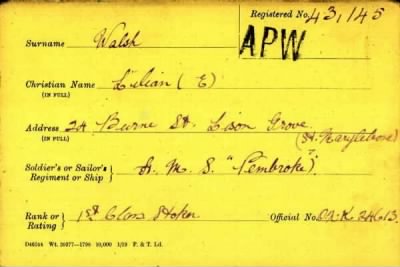 Registered No. 43,145
APW
Surname Walsh
Christian Name Lilian (E)
(IN FULL)
Address 24 Burne St. Lison Grove.
(IN FULL) (St. Marylebone)
Soldier's or Sailor's H. M. S. "Pembroke".
Regiment or Ship
Rank or 1st Class Stoker Official No. K 24613.
Rating
D46344 Wt. 39277—1796 10,000 1/19 F. & T. Ld.